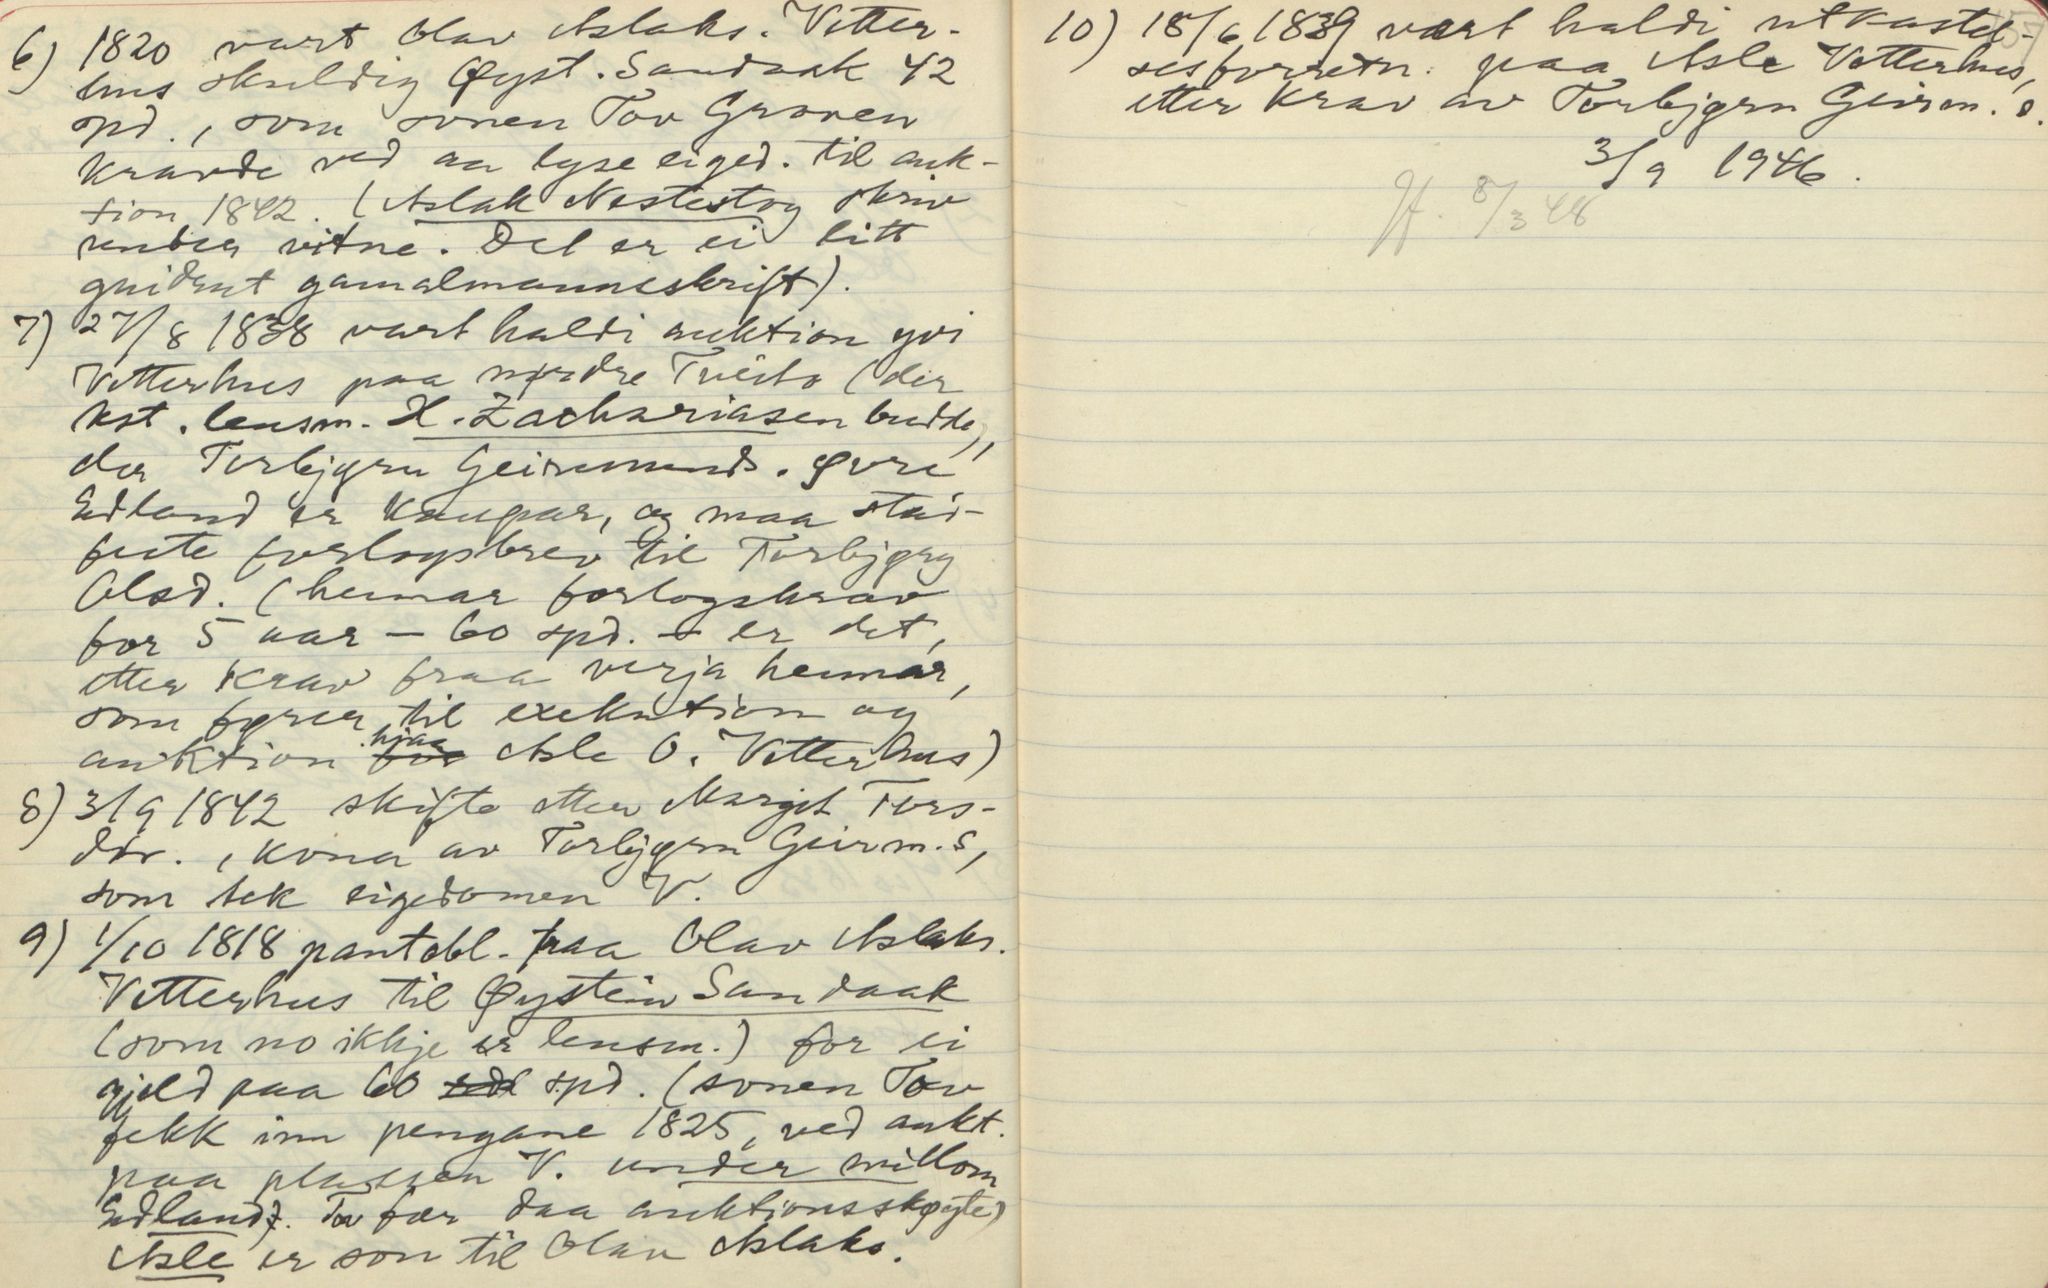 6) 1820 vart Olav Aslaks. Vetter-
hus skuldig Øyst. Sandaak 42
spd., som sonen Tov Groven
kravde ved aa lyse eiged. til auk-
tion 1842. (Aslak Nestestog skriv
under vitne. Det er ei litt
gnidrut gamalmannsskrift).
7) 27/8 1838 vart haldi auktion yvi
Vetterhus paa nørdre Tveito (der
kst. lensm. H. Zachariasen budde),
der Torbjørn Geirmunds. Øvre
Edland er kaupar, og maa stad-
feste forlogsbrev til Torbjørg
Olsd. (hennar forlogskrav
for 5 aar – 60 spd. – er det,
etter krav fraa verja hennar,
som fører til exekution og
auktion hjaa Asle O. Vetterhus)
8) 3/9 1842 skifte etter Margit Tors-
dtr., kona av Torbjørn Geirm.s,
som tek eigedomen V.
9) 1/10 1818 pantobl. fraa Olav Aslaks.
Vetterhus til Øystein Sandaak
(som no ikkje er lensm.) for ei
gjeld paa 60 spd. (sonen Tov
fekk inn pengane 1825, ved aukt.
paa plassen V. under millom
Edland). Tov fær daa auktionsskøyte)
Asle er son til Olav Aslaks.
10) 18/6 1839 vart haldi utkastel-
sesforretn. paa Asle Vetterhus,
etter krav av Torbjørn Geirm. s.
3/9 1946.
8/3 48